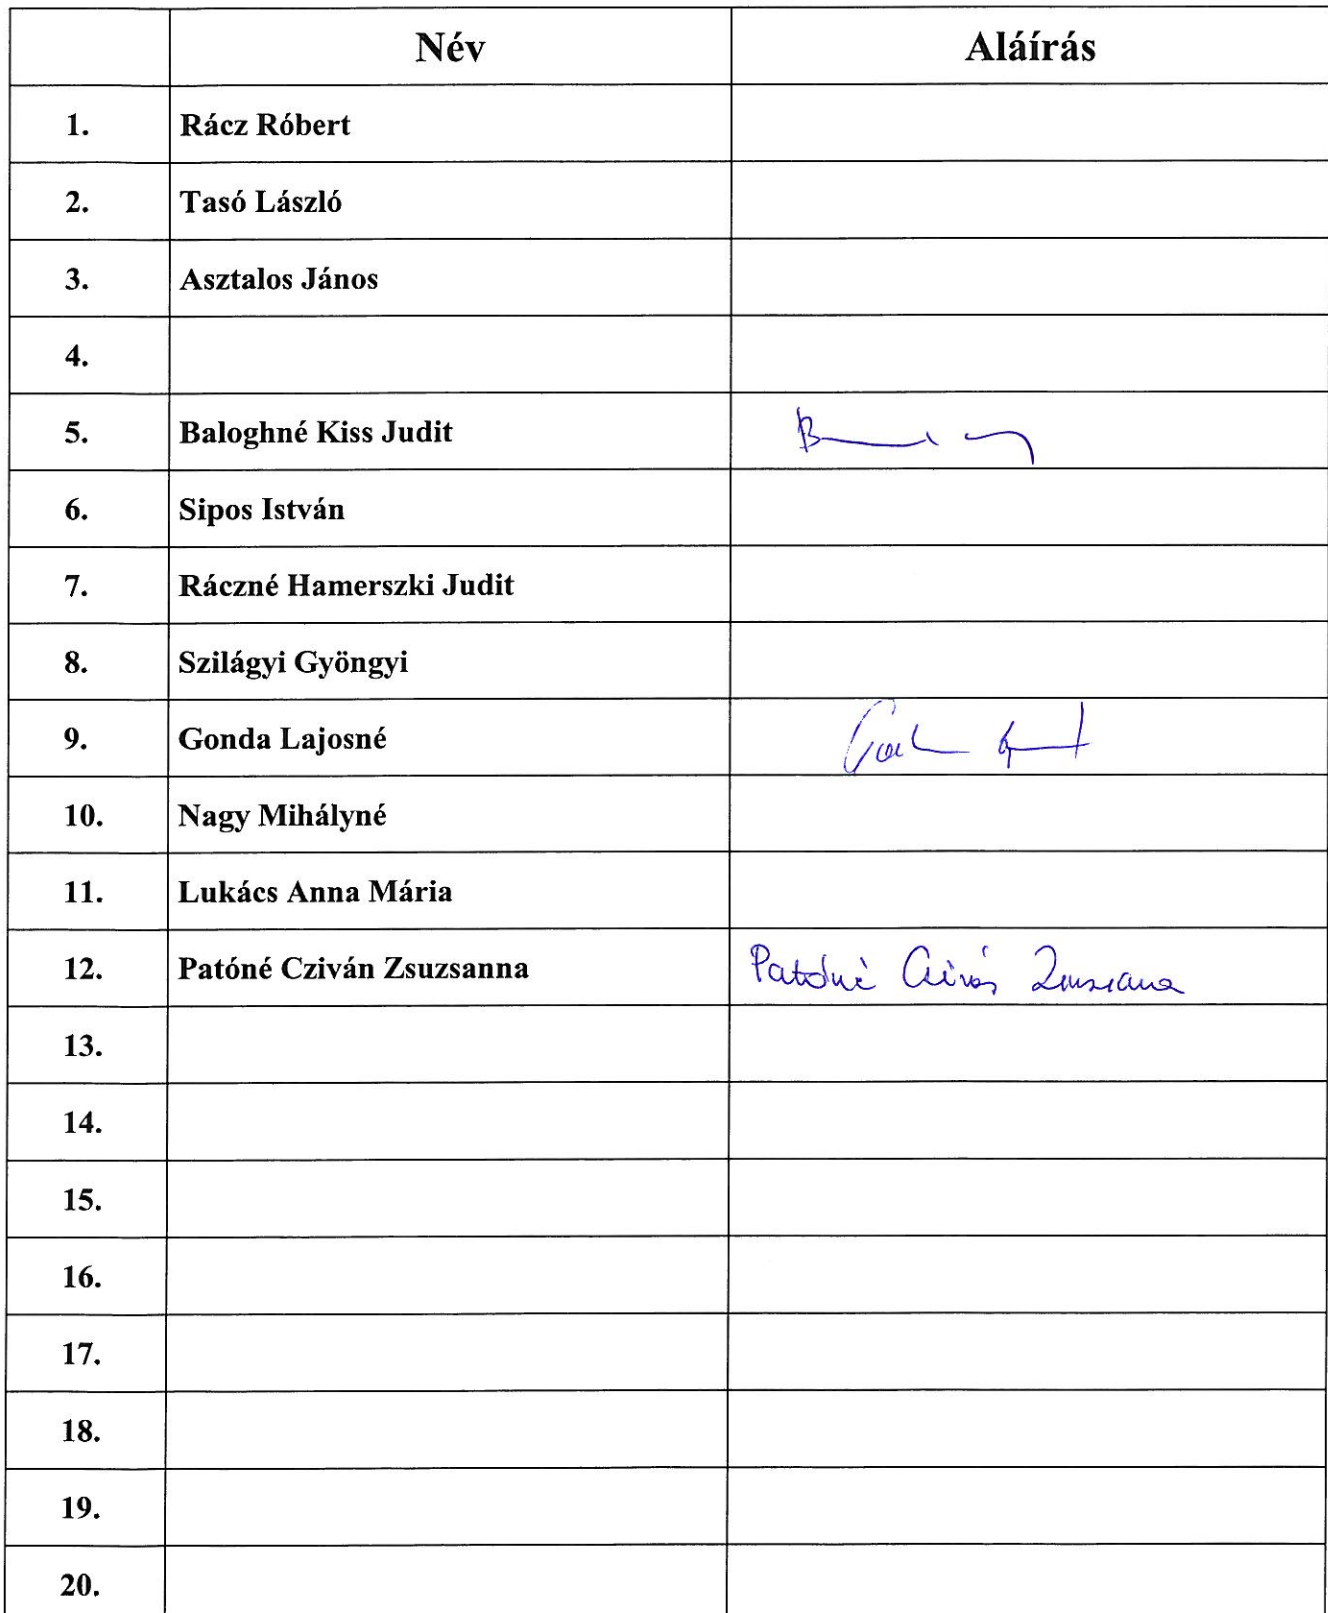 Név Aláírás
1. Rácz Róbert
2. Tasó László
3. Asztalos János
4.
5. Baloghné Kiss Judit
6. Sipos István
7. Ráczné Hamerszki Judit
8. Szilágyi Gyöngyi
9. Gonda Lajosné
10. Nagy Mihályné
11. Lukács Anna Mária
12. Patóné Cziván Zsuzsanna Patóné
13.
14.
15.
16.
17.
18.
19.
20.